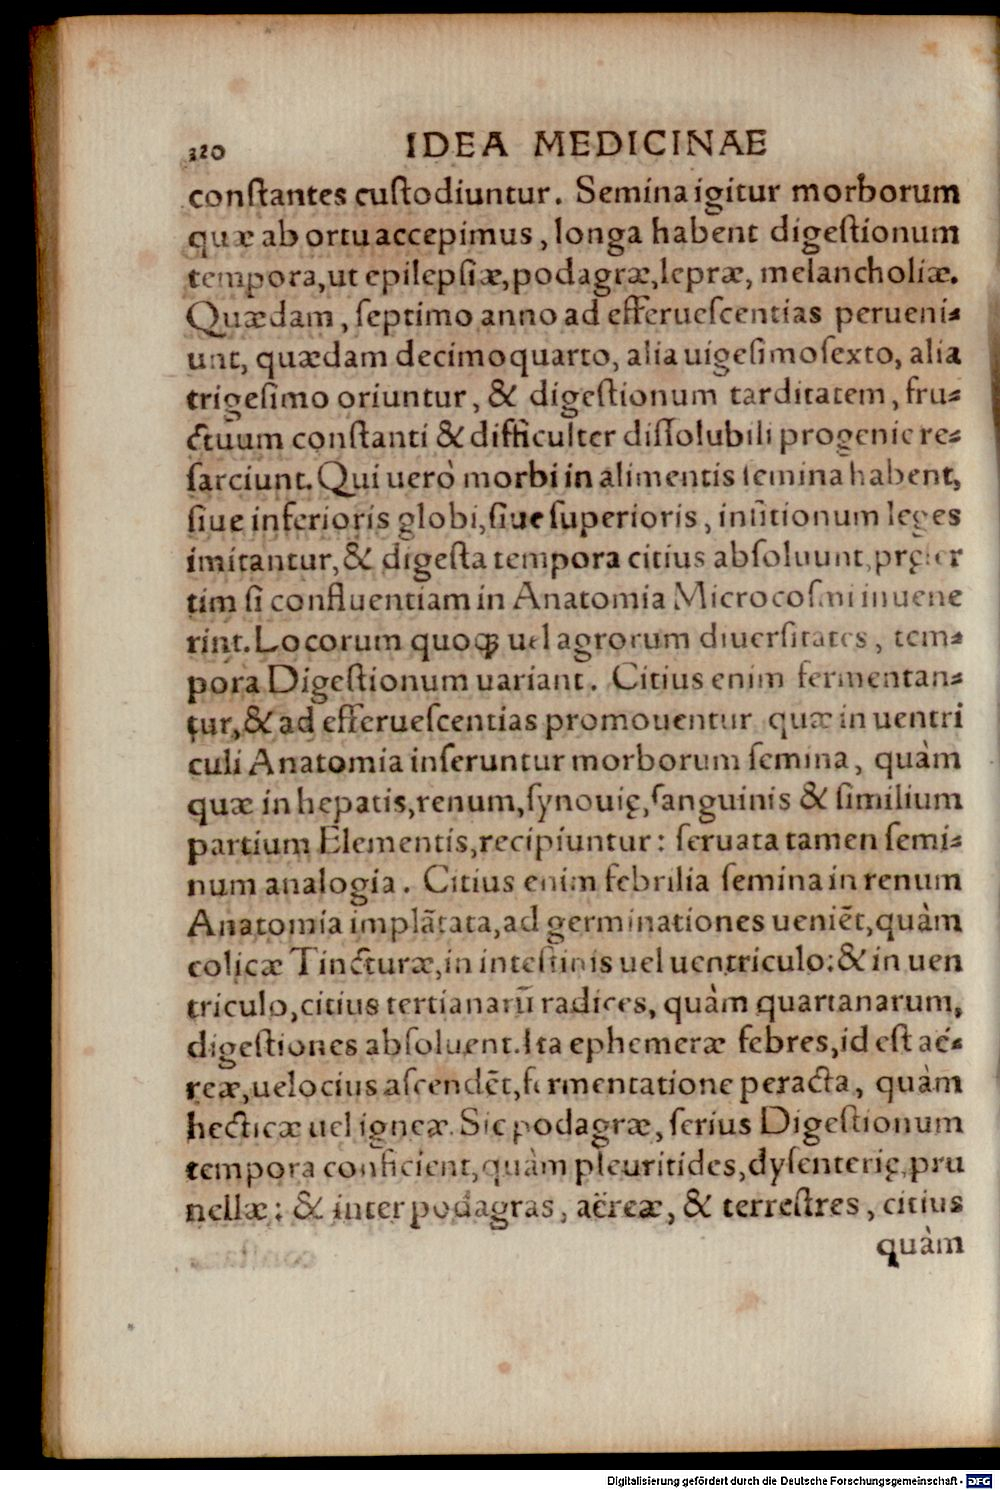 320 IDEA MEDICINAE
conſtantes cuſtodiuntur. Semina igitur morborum
quæ ab ortu accepimus, longa habent digeſtionum
tempora, ut epilepſiæ, podagræ, lepræ, melancholiæ.
Quædam, ſeptimo anno ad efferueſcentias perueni-
unt, quædam decimoquarto, alia uigeſimoſexto, alia
trigeſimo oriuntur, & digeſtionum tarditatem, fru-
ctuum conſtanti & difficulter diſſolubili progenie re-
ſarciunt. Qui uerò morbi in alimentis ſemina habent,
ſiue inferioris globi, ſiue ſuperioris, inſitionum leges
imitantur, & digeſta tempora citius abſoluunt,
tim ſi confluentiam in Anatomia Microcoſmi inuene
rint. Locorum quoqꝫ uel agrorum diuerſitates, tem-
pora Digeſtionum uariant. Citius enim fermentan-
tur, & ad efferueſcentias promouentur quæ in uentri
culi Anatomia inſeruntur morborum ſemina, quàm
quæ in hepatis, renum, ſynouię, ſanguinis & ſimilium
partium Elementis, recipiuntur: ſeruata tamen ſemi-
num analogia. Citius enim febrilia ſemina in renum
Anatomia implãtata, ad germinationes ueniẽt, quàm
colicæ Tincturæ, in inteſtinis uel uentriculo: & in uen
triculo, citius tertianarũ radices, quàm quartanarum,
digeſtiones abſoluent. Ita ephemeræ febres, id eſt aë-
reæ, uelocius aſcendẽt, fermentatione peracta, quàm
hecticæ uel igneæ. Sic podagræ, ſerius Digeſtionum
tempora conficient, quàm pleuritides, dyſenterię, pru
nellæ: & inter podagras, aëreæ, & terreſtres, citius
quàm
Digitalisierung gefördert durch die Deutsche Forschungsgemeinschaft - DFG